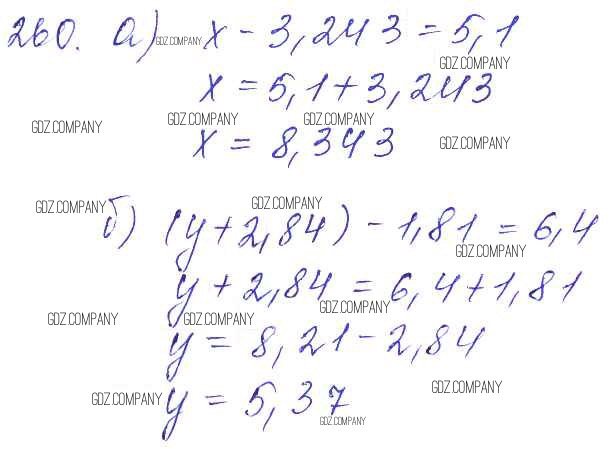 260. а) GDZ.COMPANY x - 3,243 = 5,1
GDZ.COMPANY
x = 5,1 + 3,243
GDZ.COMPANY GDZ.COMPANY GDZ.COMPANY
x = 8,343 GDZ.COMPANY
GDZ.COMPANY GDZ.COMPANY
б) (y + 2,84) - 1,81 = 6,4
GDZ.COMPANY
y + 2,84 = 6,4 + 1,81
GDZ.COMPANY GDZ.COMPANY GDZ.COMPANY
y = 8,21 - 2,84
GDZ.COMPANY y = 5,37 GDZ.COMPANY
GDZ.COMPANY